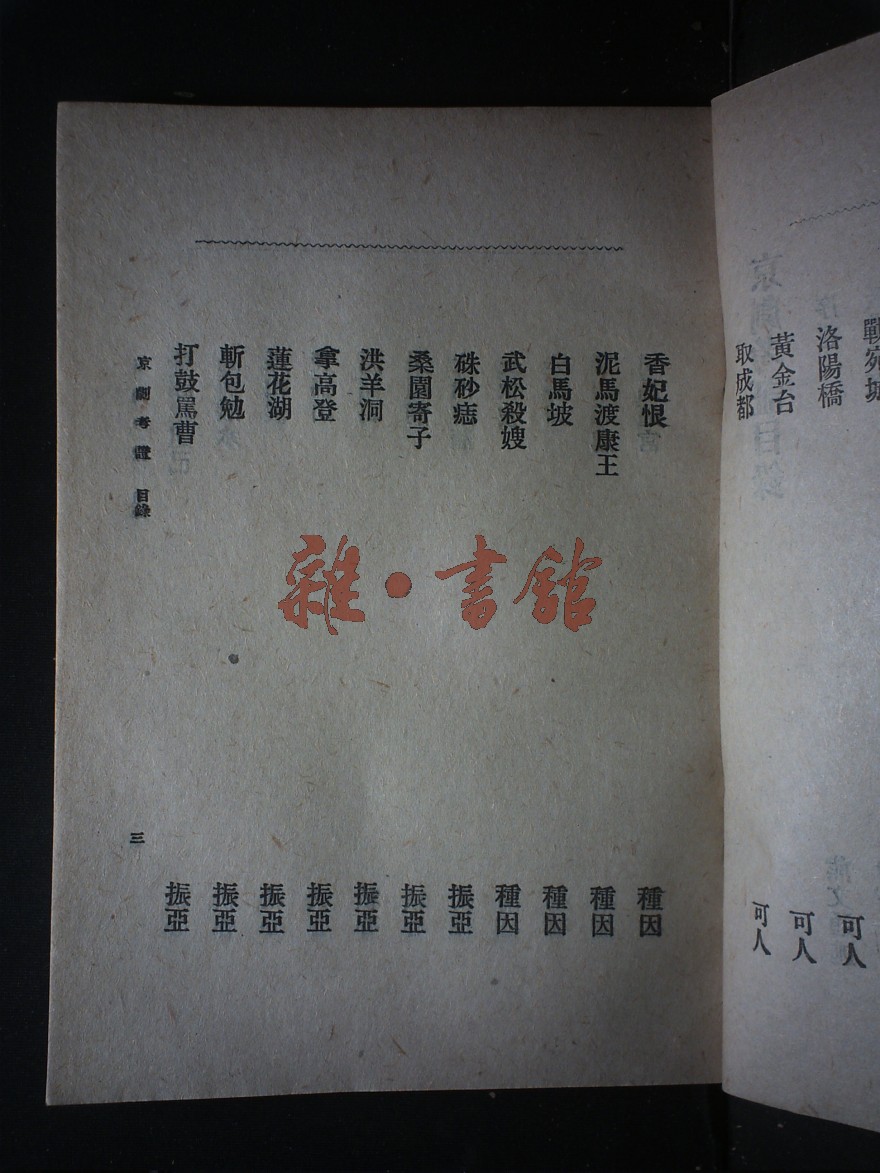 戰宛城
洛陽橋 可人
黃金台 可人
取成都 可人
香妃恨 種因
泥馬渡康王 種因
白馬坡 種因
武松殺嫂 種因
硃砂痣 振亞
桑園寄子 振亞
洪羊洞 振亞
拿高登 振亞
蓮花湖 振亞
斬包勉 振亞
打鼓罵曹 振亞
京劇考證 目錄 三
雜·書館